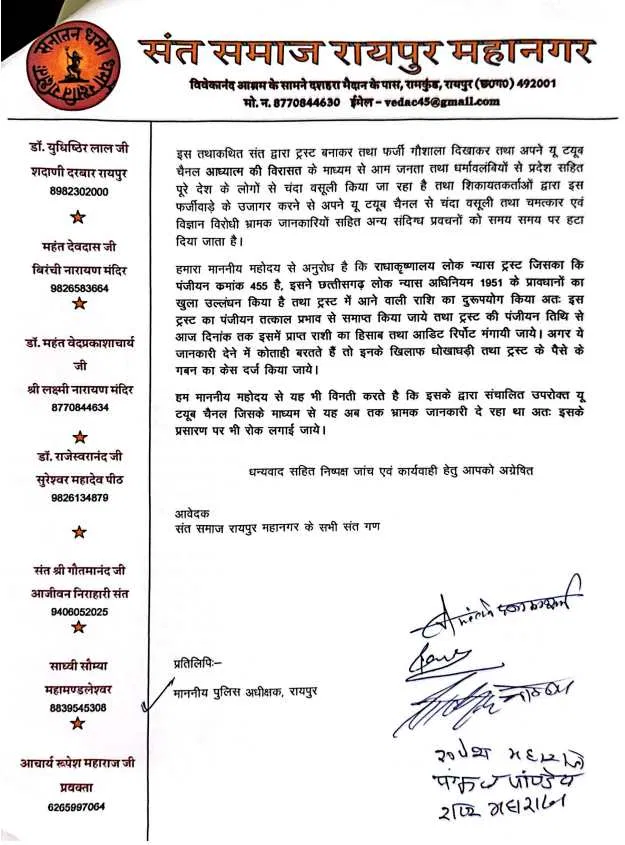 सनातन धर्मो
संत समाज रायपुर महानगर
विवेकानंद आश्रम के सामने दशहरा मैदान के पास, रामकुंड, रायपुर (छ०ग०) 492001
मो. न. 8770844630 ईमेल - vedac45@gmail.com
डॉ. युधिष्ठिर लाल जी
शदाणी दरबार रायपुर
8982302000
महंत देवदास जी
बिरंची नारायण मंदिर
9826583664
डॉ. महंत वेदप्रकाशाचार्य
जी
श्री लक्ष्मी नारायण मंदिर
8770844634
डॉ. राजेश्वरानंद जी
सुरेश्वर महादेव पीठ
9826134879
संत श्री गौतमानंद जी
आजीवन निराहारी संत
9406052025
साध्वी सौम्या
महामण्डलेश्वर
8839545308
आचार्य रूपेश महाराज जी
प्रवक्ता
6265997064
इस तथाकथित संत द्वारा ट्रस्ट बनाकर तथा फर्जी गौशाला दिखाकर तथा अपने यू टयूब
चैनल आध्यात्म की विरासत के माध्यम से आम जनता तथा धर्मावलंबियों से प्रदेश सहित
पूरे देश के लोगों से चंदा वसूली किया जा रहा है तथा शिकायतकर्ताओं द्वारा इस
फर्जीवाड़े के उजागर करने से अपने यू टयूब चैनल से चंदा वसूली तथा चमत्कार एवं
विज्ञान विरोधी भ्रामक जानकारियों सहित अन्य संदिग्ध प्रवचनों को समय समय पर हटा
दिया जाता है।
हमारा माननीय महोदय से अनुरोध है कि राधाकृष्णालय लोक न्यास ट्रस्ट जिसका कि
पंजीयन कमांक 455 है, इसने छत्तीसगढ़ लोक न्यास अधिनियम 1951 के प्रावधानों का
खुला उल्लंघन किया है तथा ट्रस्ट में आने वाली राशि का दुरूपयोग किया अतः इस
ट्रस्ट का पंजीयन तत्काल प्रभाव से समाप्त किया जाये तथा ट्रस्ट की पंजीयन तिथि से
आज दिनांक तक इसमें प्राप्त राशी का हिसाब तथा आडिट रिर्पोट मंगायी जाये। अगर ये
जानकारी देने में कोताही बरतते हैं तो इनके खिलाफ धोखाधड़ी तथा ट्रस्ट के पैसे के
गबन का केस दर्ज किया जाये।
हम माननीय महोदय से यह भी विनती करते है कि इसके द्वारा संचालित उपरोक्त यू
टयूब चैनल जिसके माध्यम से यह अब तक भ्रामक जानकारी दे रहा था अतः इसके
प्रसारण पर भी रोक लगाई जाये।
धन्यवाद सहित निष्पक्ष जांच एवं कार्यवाही हेतु आपको अग्रेषित
आवेदक
संत समाज रायपुर महानगर के सभी संत गण
प्रतिलिपिः–
माननीय पुलिस अधीक्षक, रायपुर
महाराज
पंकज पाण्डेय
महाराज